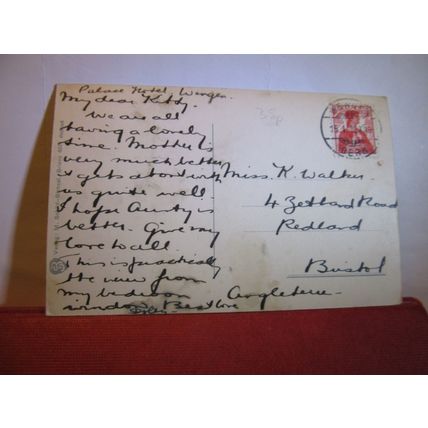 Palace Hotel, Wengen.
My dear Kitty.
We are all
having a lovely
time. Mother is
very much better
& gets about with
us quite well
I hope Aunty is
better. Give my
love to all.
This is practically
the view from
my bedroom
window. Best love
35p
Miss. K. Walker.
4 Zetland Road
Redland
Bristol
Angleterre.